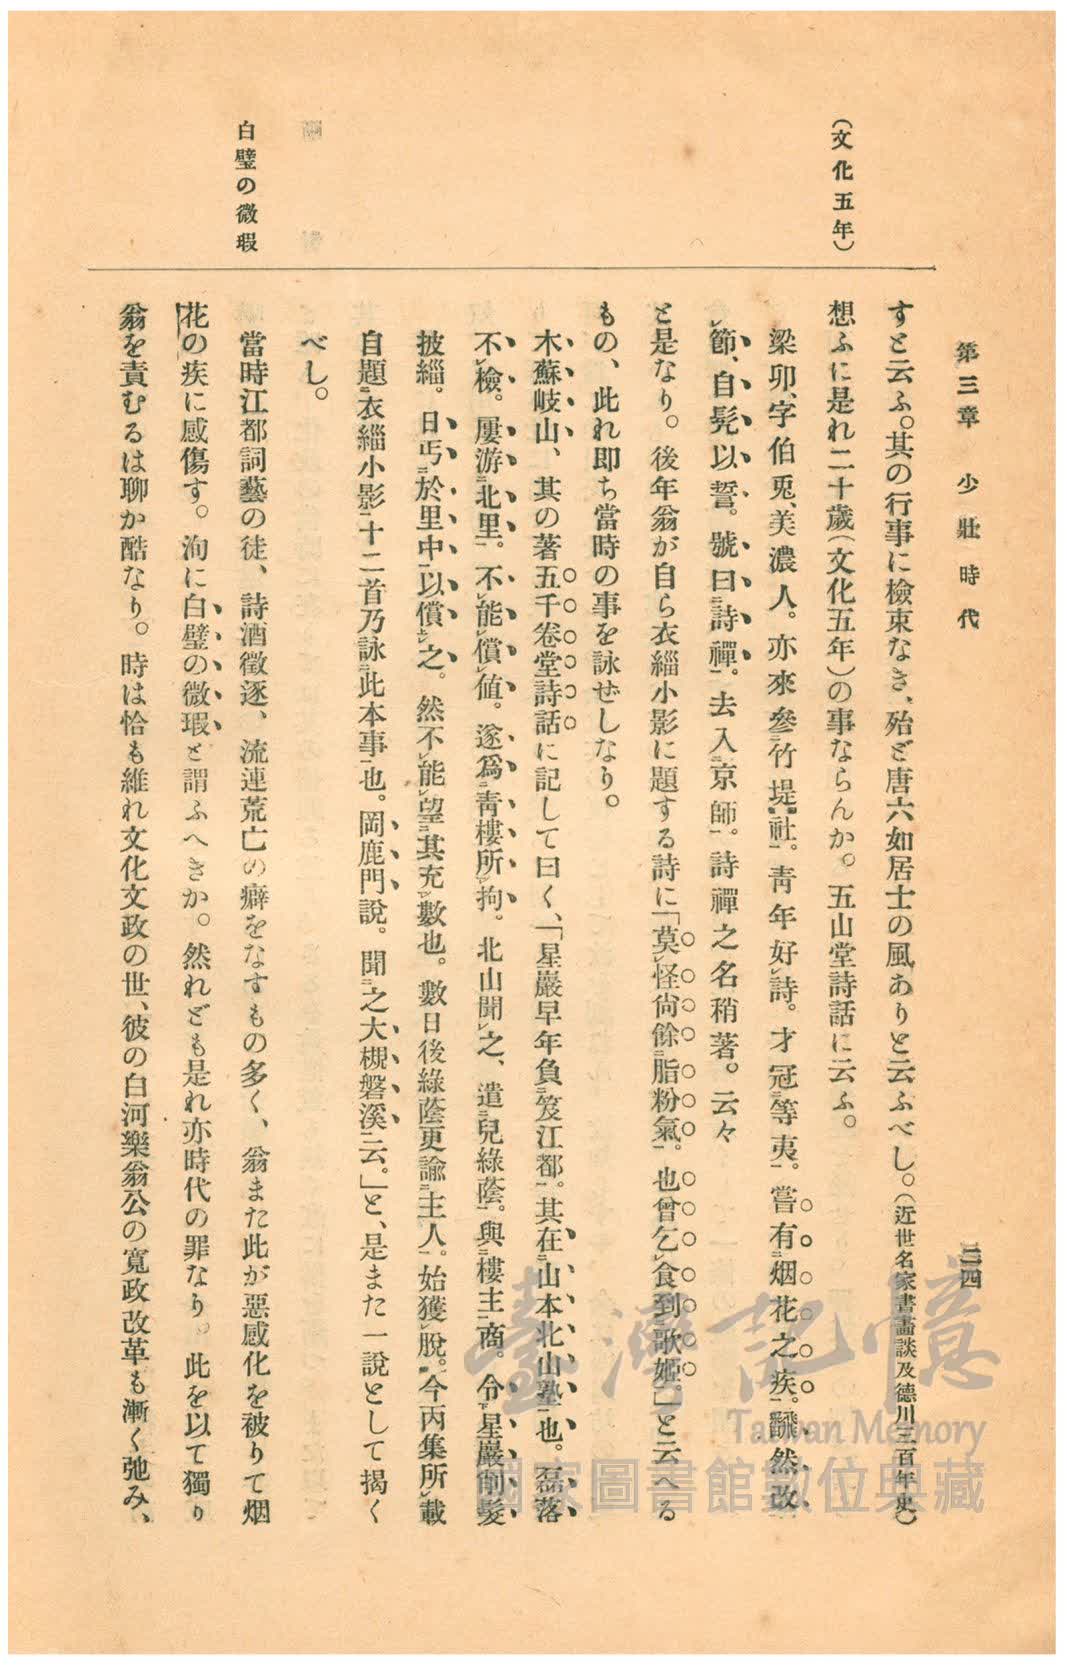 第三章 少壯時代
三四
(文化五年)
白璧の微瑕
すと云ふ。其の行事に檢束なき、殆ど唐六如居士の風ありと云ふべし。(近世名家書畫談及德川三百年史)
想ふに是れ二十歲(文化五年)の事ならんか。五山堂詩話に云ふ。
梁卯、字伯兎、美濃人。亦來參二竹堤社一。靑年好レ詩。才冠二等夷一。嘗有二烟花之疾一。飜然改
レ節、自髡以誓。號曰二詩禪一。去入二京師一。詩禪之名稍著。云々
と是なり。後年翁が自ら衣緇小影に題する詩に「莫レ怪尙餘二脂粉氣一。也曾乞レ食到二歌姬一。」と云へる
もの、此れ即ち當時の事を詠ぜしなり。
木蘇岐山、其の著五千卷堂詩話に記して曰く、「星巖早年負二笈江都一。其在二山本北山塾一也。磊落
不レ檢。屢游二北里一。不レ能レ償レ値。遂爲二靑樓所一レ拘。北山聞レ之、遣二兒綠蔭一。與二樓主一商。令下星巖削髮
披緇。日丐二於里中一以償上レ之。然不レ能レ望二其充一レ數也。數日後綠蔭更諭二主人一。始獲レ脫。今丙集所レ載
自題二衣緇小影一十二首乃詠二此本事一也。岡鹿門說。聞二之大槻磐溪一云。」と、是また一說として揭く
べし。
當時江都詞藝の徒、詩酒徵逐、流連荒亡の癖をなすもの多く、翁また此が惡感化を被りて烟
花の疾に感傷す。洵に白璧の微瑕と謂ふへきか。然れども是れ亦時代の罪なり。此を以て獨り
翁を責むるは聊か酷なり。時は恰も維れ文化文政の世、彼の白河樂翁公の寬政改革も漸く弛み、
臺灣記憶
Taiwan Memory
國家圖書館數位典藏